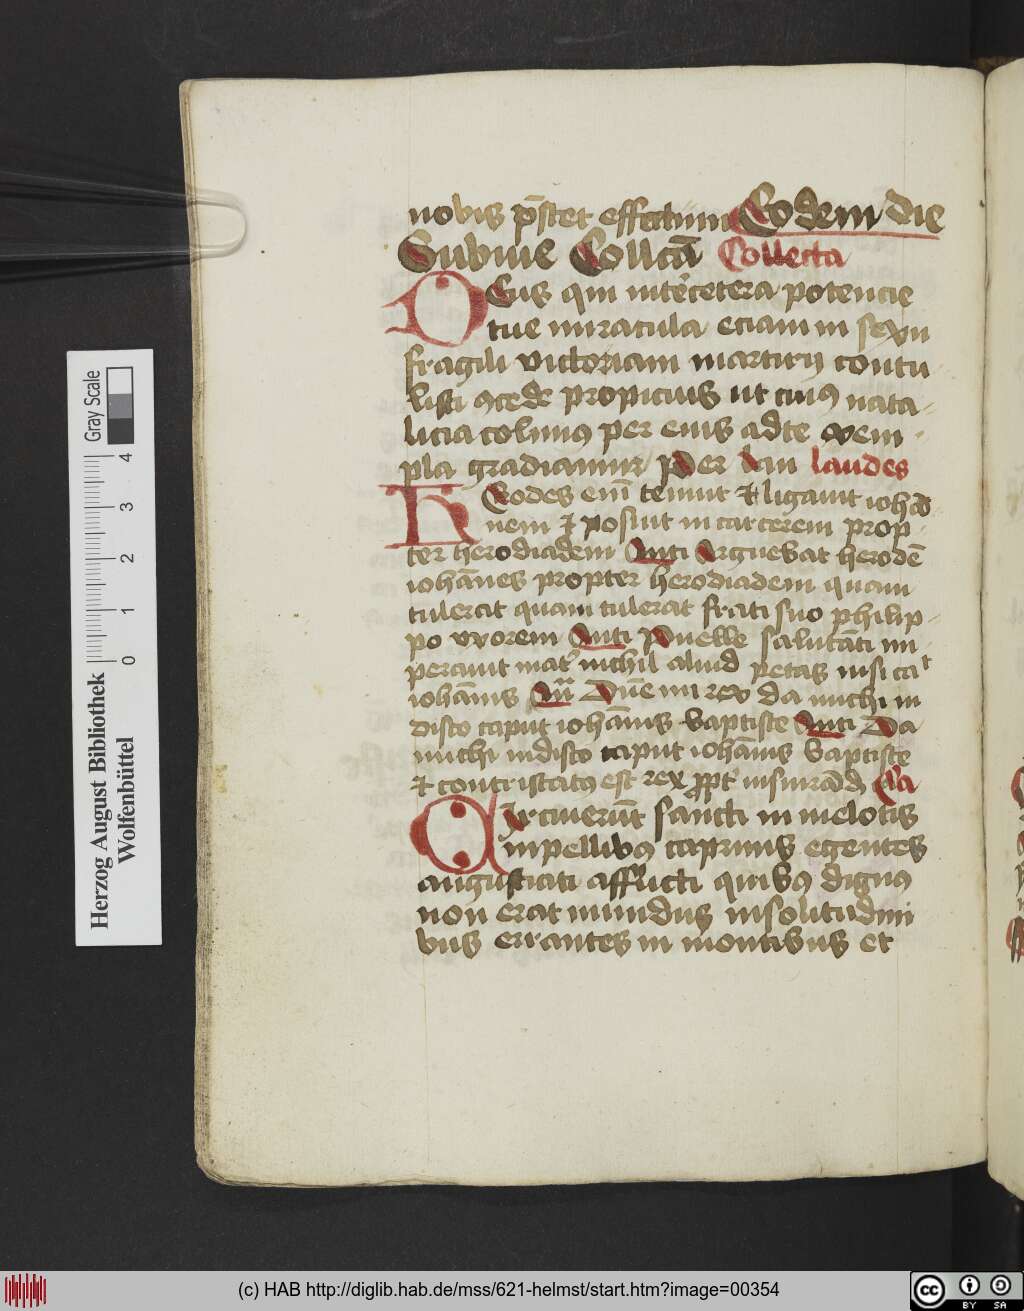 nobis p̄stet effectum Eodem die
Sabine Collcā Collecta
DEus qui inter cetera potencie
tue miracula eciam in sexu
fragili victoriam martirij contu
listi ꝯcede propicius ut cuiꝰ nata-
licia colimꝰ per eius ad te exem-
pla gradiamur Per dm̄ laudes
Herodes eni̅ tenuit et ligauit iohā
nem et posuit in carcerem prop-
ter herodiadem An̄ti Arguebat herodē
iohānes propter herodiadem quam
tulerat quam tulerat frati suo philip-
po vxorem An̄ti Puelle saltāti im
perauit mat᷑ nichil aliud petas nisi caᵗ
iohānis An̄ Dn̄e mi rex da michi in
disco caput iohānis baptiste An̄ti Da
michi in disco caput iohānis baptiste
et contristatꝰ est rex ꝓpt᷑ iusiurād Cla
CIrcuierūt sancti in melotis
in pellibꝰ caprinis egentes
angustiati afflicti quibꝰ dignꝰ
non erat mundus in solitudini
bus errantes in montibus et
Herzog August Bibliothek
Wolfenbüttel
Gray Scale
0 1 2 3 4
(c) HAB http://diglib.hab.de/mss/621-helmst/start.htm?image=00354
cc BY SA